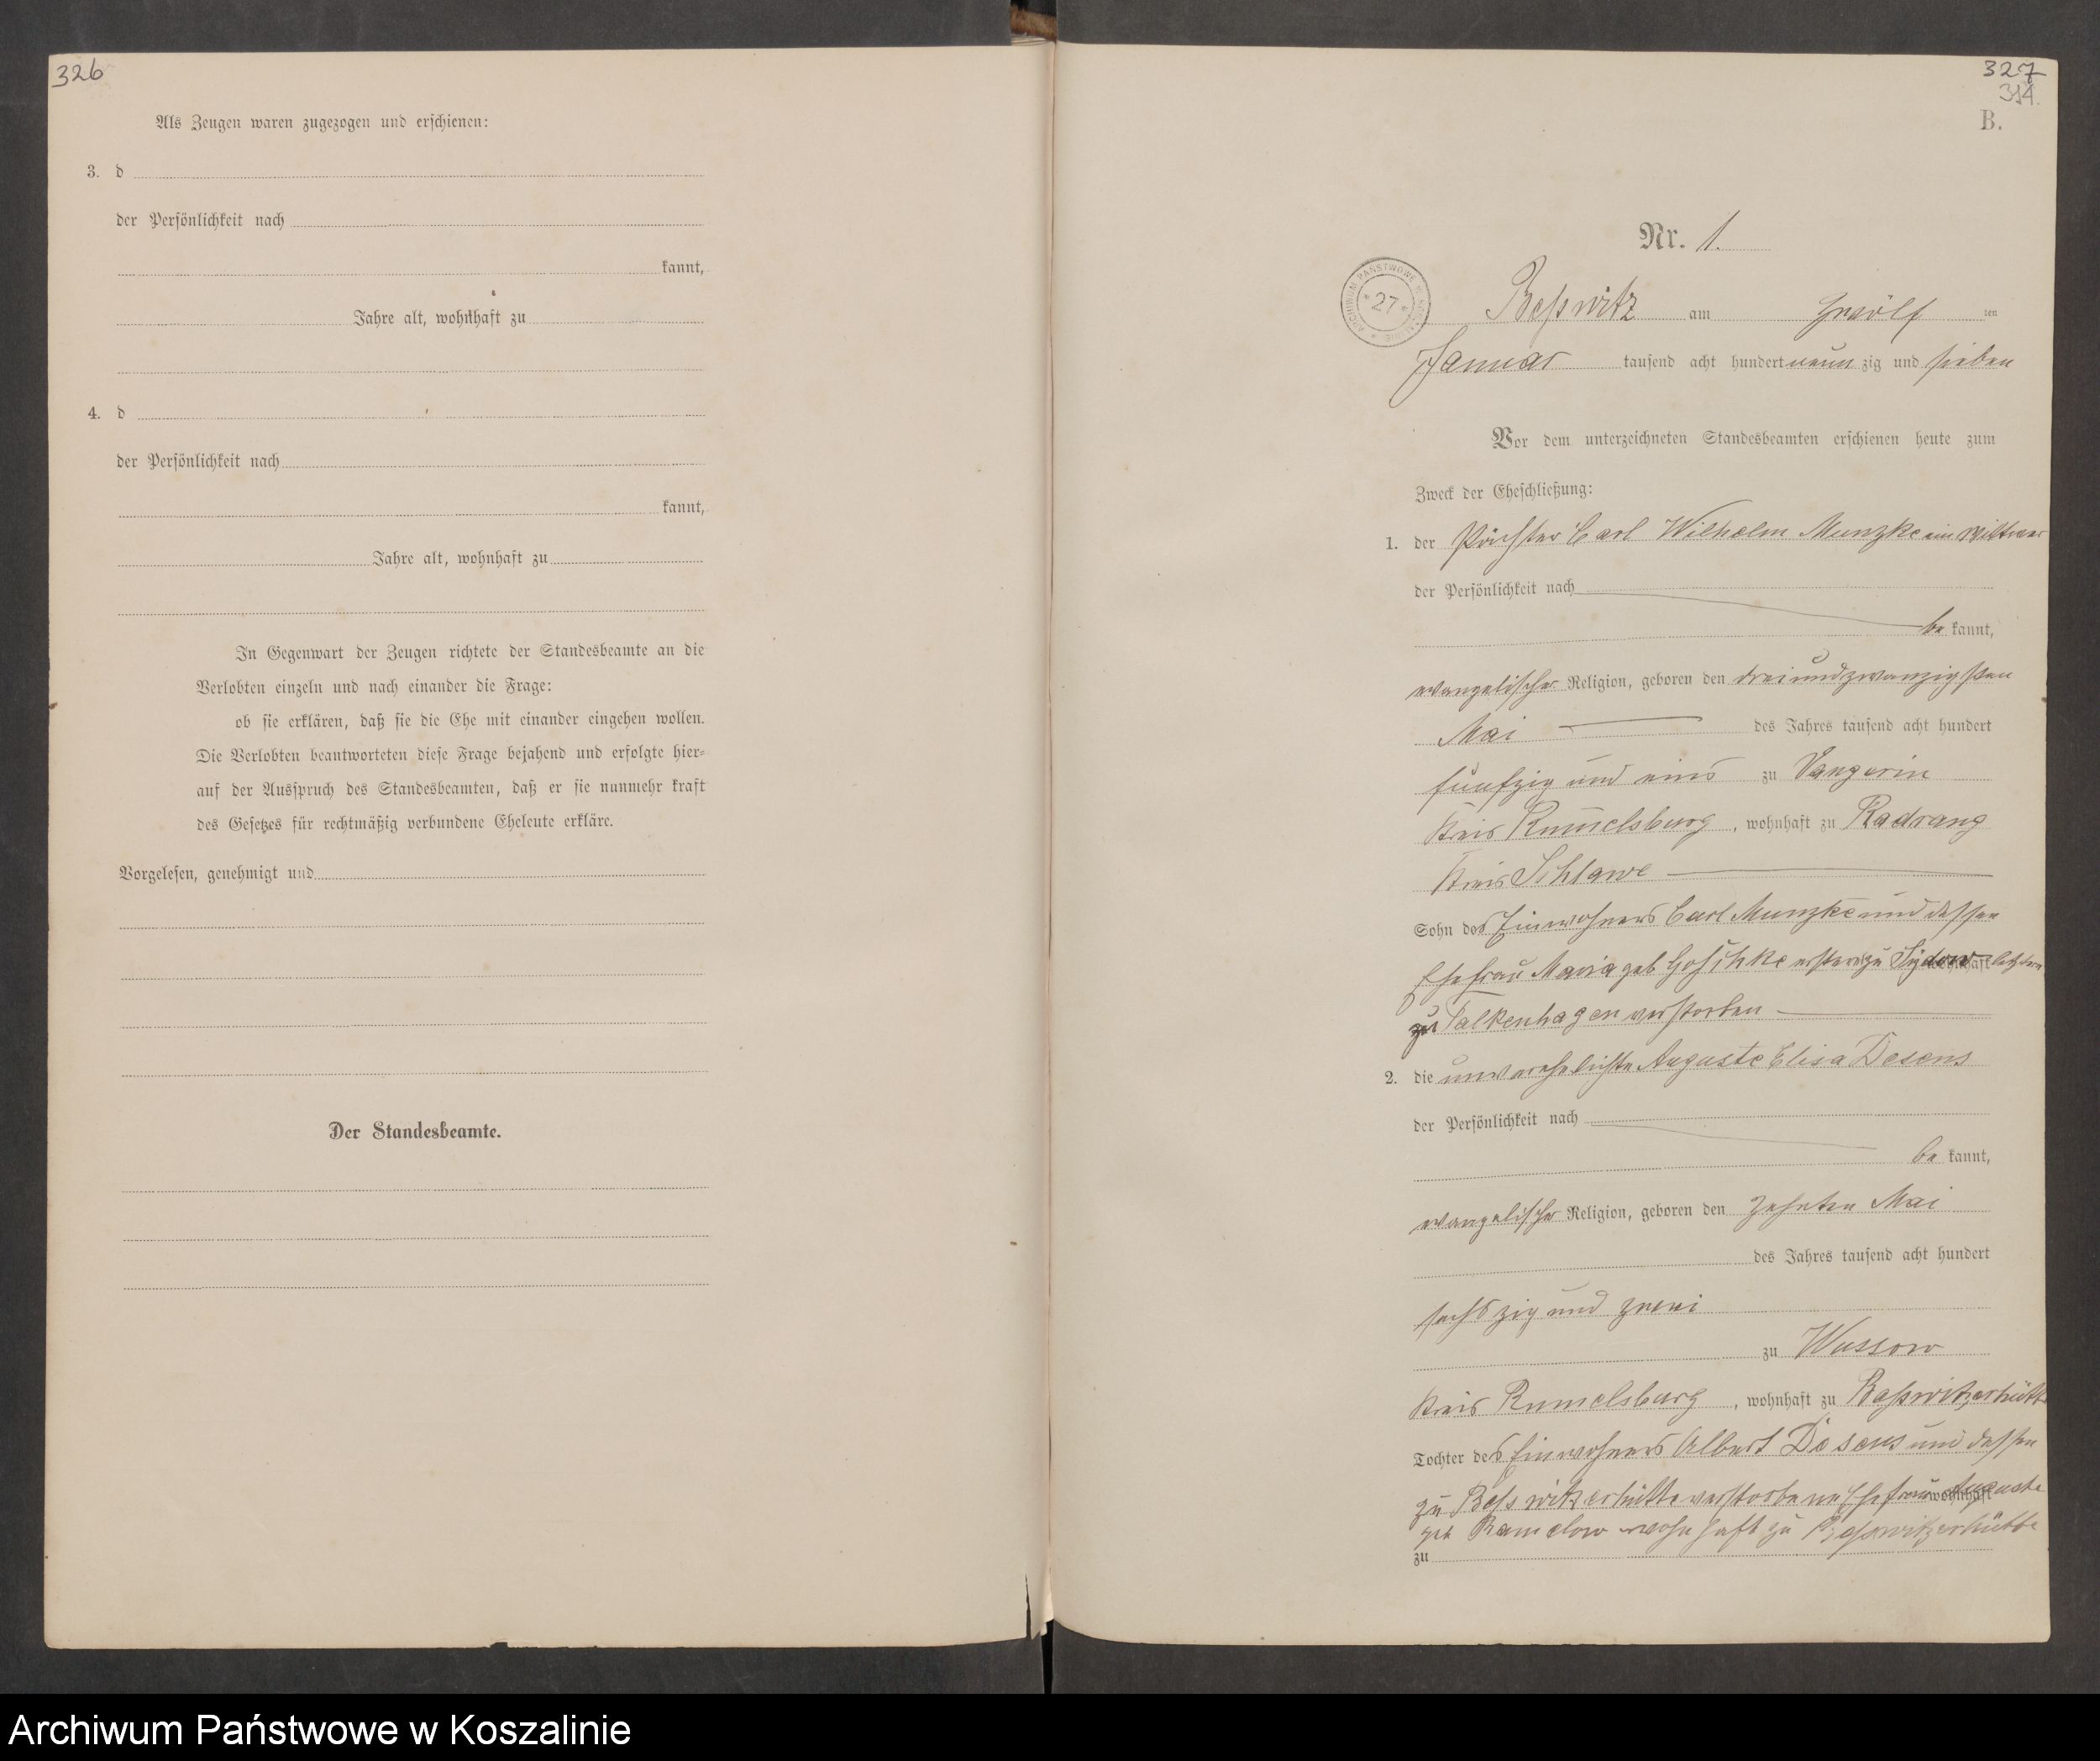 326
Als Zeugen waren zugezogen und erschienen:
3. d
der Persönlichkeit nach
kannt,
Jahre alt, wohnhaft zu
4. d
der Persönlichkeit nach
kannt,
Jahre alt, wohnhaft zu
In Gegenwart der Zeugen richtete der Standesbeamte an die
Verlobten einzeln und nach einander die Frage:
ob sie erklären, daß sie die Ehe mit einander eingehen wollen.
Die Verlobten beantworteten diese Frage bejahend und erfolgte hier-
auf der Ausspruch des Standesbeamten, daß er sie nunmehr kraft
des Gesetzes für rechtmäßig verbundene Eheleute erkläre.
Vorgelesen, genehmigt und
Der Standesbeamte.
327
314.
B.
Nr. 1.
ARCHIWUM PAŃSTWOWE W KOSZALINIE
* 27 *
Beßwitz am Zwölf ten
Januar tausend acht hundert neun zig und sieben
Vor dem unterzeichneten Standesbeamten erschienen heute zum
Zweck der Eheschließung:
1. der Carl Wilhelm Munzke ein Wittwer
der Persönlichkeit nach
be kannt,
evangelischer Religion, geboren den dreiundzwanzigsten
Mai des Jahres tausend acht hundert
fünfzig und eins zu Vangerin
Kreis Rummelsburg, wohnhaft zu Radrang
Kreis Schlawe
Sohn des Einwohners Carl Munzke und dessen
Ehefrau Maria geb Goschke ersterer zu Sydow wohnhaft letztere
zu Falkenhagen verstorben
2. die unverehelichte Auguste Elisa Desens
der Persönlichkeit nach
be kannt,
evangelischer Religion, geboren den zehnten Mai
des Jahres tausend acht hundert
sechszig und zwei
zu Wussow
Kreis Rummelsburg, wohnhaft zu Beßwitzerhütte
Tochter des Einwohners Albert Desens und dessen
zu Beßwitzerhütte verstorbene Ehefrau Auguste wohnhaft
geb Ramelow wohnhaft zu Beßwitzerhütte
zu
Archiwum Państwowe w Koszalinie